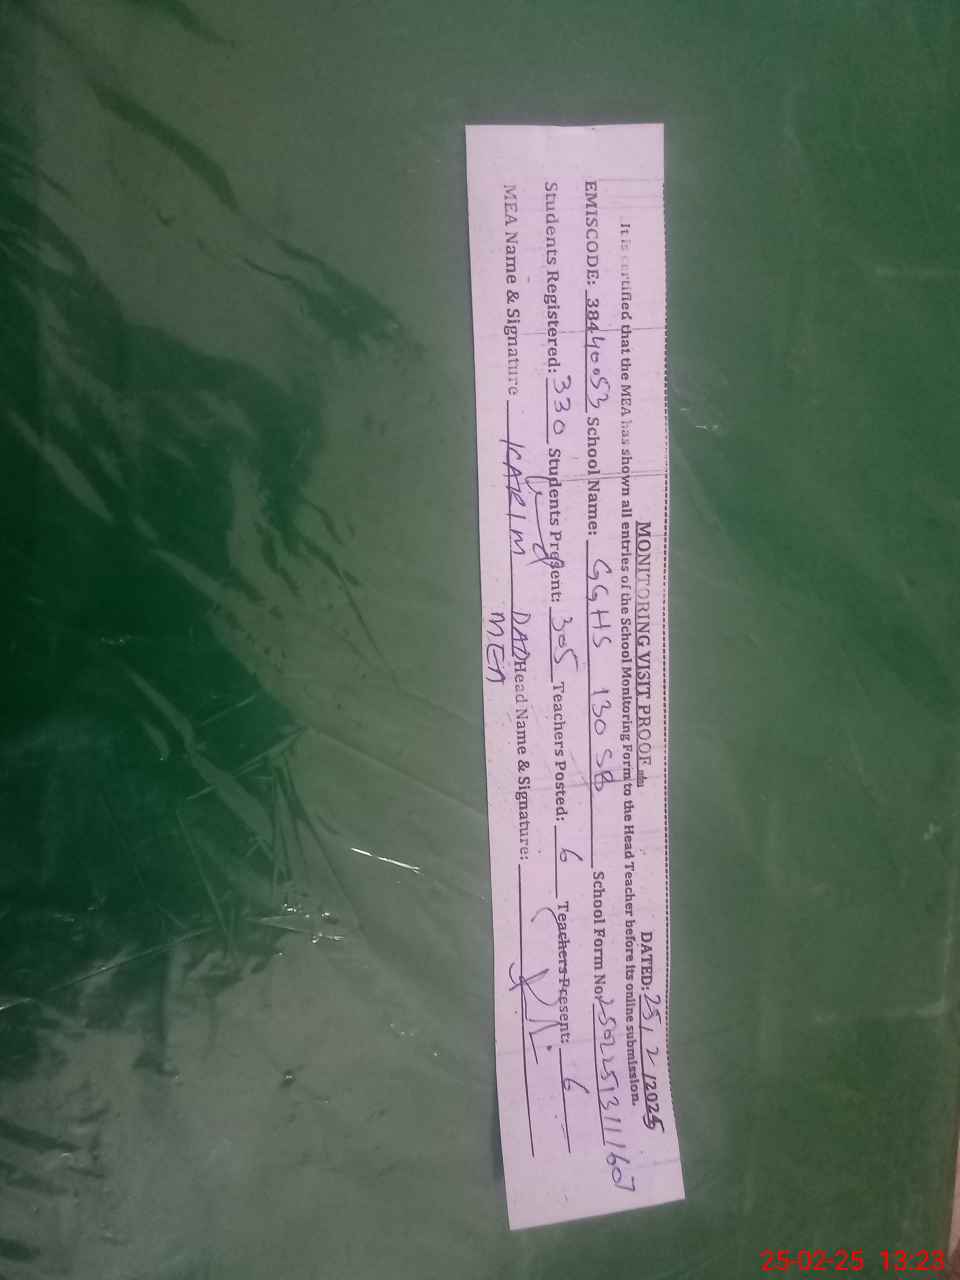 MONITORING VISIT PROOF DATED: 25/2/2025
It is certified that the MEA has shown all entries of the School Monitoring Form to the Head Teacher before its online submission.
EMISCODE: 38440053 School Name: GGHS 130 SB School Form No: 25022513111607
Students Registered: 330 Students Present: 305 Teachers Posted: 6 Teachers Present: 6
MEA Name & Signature KARIM DAD Head Name & Signature:
MEA
25-02-25 13:23